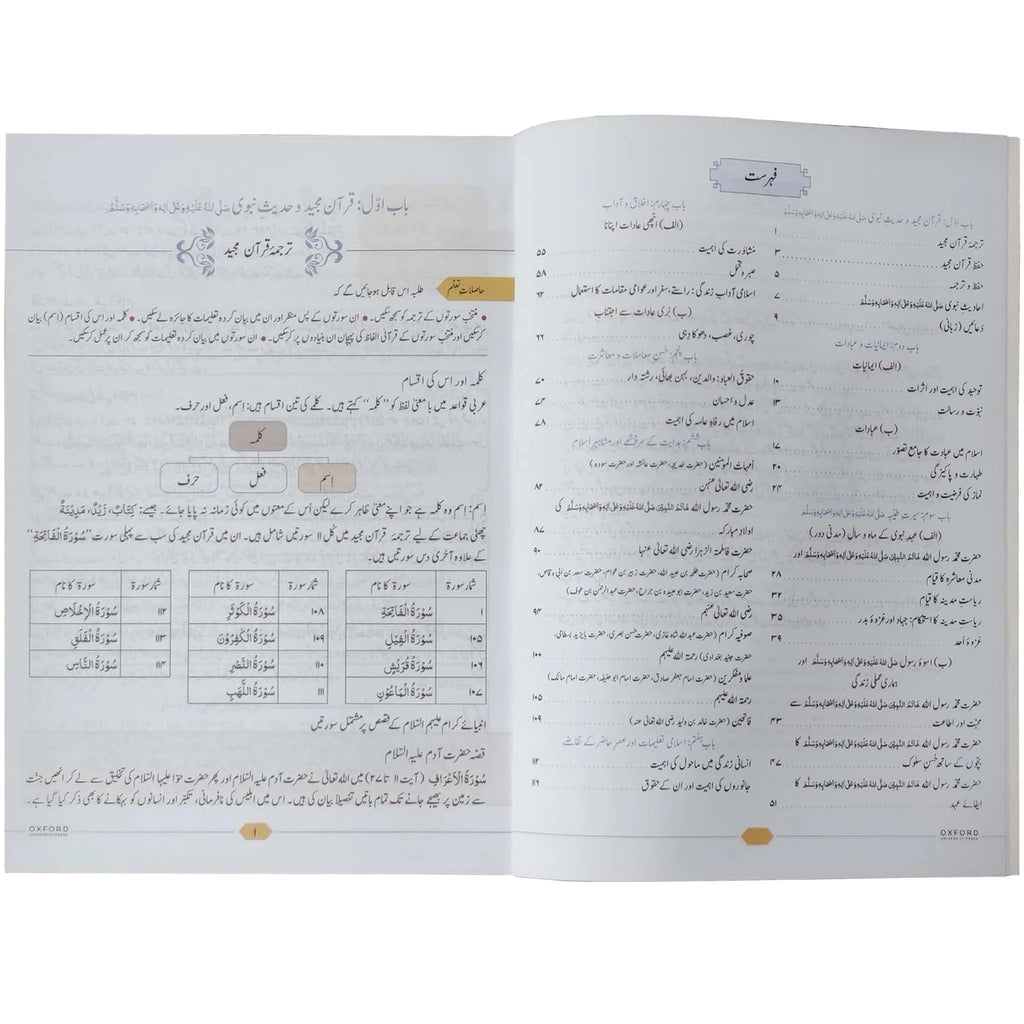 فہرست
باب اوّل: قرآن مجید و حدیثِ نبوی صَلَّی اللہُ عَلَیْہِ وَعَلٰی اٰلِہٖ وَاَصْحَابِہٖ وَسَلَّمَ
ترجمۂ قرآن مجید ۱
حفظ قرآن مجید ۳
حفظ و ترجمہ ۵
احادیثِ نبوی صَلَّی اللہُ عَلَیْہِ وَعَلٰی اٰلِہٖ وَاَصْحَابِہٖ وَسَلَّمَ ۷
دعائیں (زبانی) ۹
باب دوم: ایمانیات و عبادات
(الف) ایمانیات
توحید کی اہمیت اور اثرات ۱۰
نبوّت و رسالت ۱۳
(ب) عبادات
اسلام میں عبادت کا جامع تصوّر ۱۷
طہارت و پاکیزگی ۲۰
نماز کی فرضیت و اہمیت ۲۴
باب سوم: سیرتِ طیّبہ صَلَّی اللہُ عَلَیْہِ وَعَلٰی اٰلِہٖ وَاَصْحَابِہٖ وَسَلَّمَ
(الف) عہدِ نبوی کے ماہ و سال (مدنی دور)
حضرت محمّد رسول اللہ خَاتَمُ النَّبِیّٖنَ صَلَّی اللہُ عَلَیْہِ وَعَلٰی اٰلِہٖ وَاَصْحَابِہٖ وَسَلَّمَ اور
مدنی معاشرہ کا قیام ۲۸
ریاستِ مدینہ کا قیام ۳۲
ریاستِ مدینہ کا استحکام: جہاد اور غزوۂ بدر ۳۵
غزوۂ اُحد ۳۹
(ب) اسوۂ رسول صَلَّی اللہُ عَلَیْہِ وَعَلٰی اٰلِہٖ وَاَصْحَابِہٖ وَسَلَّمَ اور
ہماری عملی زندگی
حضرت محمّد رسول اللہ خَاتَمُ النَّبِیّٖنَ صَلَّی اللہُ عَلَیْہِ وَعَلٰی اٰلِہٖ وَاَصْحَابِہٖ وَسَلَّمَ سے
محبّت اور اطاعت ۴۳
حضرت محمّد رسول اللہ خَاتَمُ النَّبِیّٖنَ صَلَّی اللہُ عَلَیْہِ وَعَلٰی اٰلِہٖ وَاَصْحَابِہٖ وَسَلَّمَ کا
بچّوں کے ساتھ حُسنِ سلوک ۴۷
حضرت محمّد رسول اللہ خَاتَمُ النَّبِیّٖنَ صَلَّی اللہُ عَلَیْہِ وَعَلٰی اٰلِہٖ وَاَصْحَابِہٖ وَسَلَّمَ کا
ایفائے عہد ۵۱
باب چہارم: اخلاق و آداب
(الف) اچّھی عادات اپنانا
مشاورت کی اہمیت ۵۵
صبر و تحمل ۵۸
اسلامی آدابِ زندگی: راستے، سفر اور عوامی مقامات کا استعمال ۶۲
(ب) بُری عادات سے اجتناب
چوری، غصب، دھوکا دہی ۶۶
باب پنجم: حُسنِ معاملات و معاشرت
حقوق العباد: والدین، بہن بھائی، رشتہ دار ۷۰
عدل و احسان ۷۴
اسلام میں رفاہِ عامہ کی اہمیت ۷۸
باب ششم: ہدایت کے سرچشمے اور مشاہیرِ اسلام
اُمہاتُ المؤمنین (حضرت خدیجہ، حضرت عائشہ اور حضرت سودہ)
رضی اللہ تعالیٰ عنہن ۸۲
حضرت محمّد رسول اللہ خَاتَمُ النَّبِیّٖنَ صَلَّی اللہُ عَلَیْہِ وَعَلٰی اٰلِہٖ وَاَصْحَابِہٖ وَسَلَّمَ کی
اولادِ مبارکہ ۸۷
حضرت فاطمۃ الزہرا رضی اللہ تعالیٰ عنہا ۹۰
صحابہ کرام (حضرت طلحہ بن عبید اللہ، حضرت زبیر بن عوام، حضرت سعد بن ابی وقاص،
حضرت سعید بن زید، حضرت ابو عبیدہ بن جراح، حضرت عبدالرحمٰن بن عوف)
رضی اللہ تعالیٰ عنہم ۹۴
صوفیہ کرام (حضرت عبد اللہ شاہ غازی، حضرت حسن بصری، حضرت بایزید بسطامی،
حضرت جنید بغدادی) رحمۃ اللہ علیہم ۱۰۰
علما و مفکرین (حضرت امام جعفر صادق، حضرت امام ابو حنیفہ، حضرت امام مالک)
رحمۃ اللہ علیہم ۱۰۵
فاتحین (حضرت خالد بن ولید رضی اللہ تعالیٰ عنہ) ۱۰۹
باب ہفتم: اسلامی تعلیمات اور عصرِ حاضر کے تقاضے
انسانی زندگی میں ماحول کی اہمیت ۱۱۲
جانوروں کی اہمیت اور ان کے حقوق ۱۱۶
OXFORD
UNIVERSITY PRESS
باب اوّل: قرآن مجید و حدیثِ نبوی صَلَّی اللہُ عَلَیْہِ وَعَلٰی اٰلِہٖ وَاَصْحَابِہٖ وَسَلَّمَ
ترجمۂ قرآن مجید
حاصلاتِ تعلّم
طلبہ اس قابل ہوجائیں گے کہ
• منتخب سورتوں کے ترجمہ کو سمجھ سکیں۔ • ان سورتوں کے پس منظر اور ان میں بیان کردہ تعلیمات کا جائزہ لے سکیں۔ • کلمہ اور اس کی اقسام (اسم) بیان
کرسکیں اور منتخب سورتوں کے قرآنی الفاظ کی پہچان ان بنیادوں پر کرسکیں۔ • ان سورتوں میں بیان کردہ تعلیمات کو سمجھ کر ان پر عمل کرسکیں۔
کلمہ اور اس کی اقسام
عربی قواعد میں بامعنیٰ لفظ کو ”کلمہ“ کہتے ہیں۔ کلمے کی تین اقسام ہیں: اِسم، فعل اور حرف۔
کلمہ
اِسم
فعل
حرف
اِسم: اِسم وہ کلمہ ہے جو اپنے معنیٰ ظاہر کرے لیکن اُس کے معنوں میں کوئی زمانہ نہ پایا جائے۔ جیسے: کِتَابٌ، زَیْدٌ، مَدِیْنَۃٌ
چھٹی جماعت کے لیے ترجمۂ قرآن مجید میں کل ۱۱ سورتیں شامل ہیں۔ ان میں قرآن مجید کی سب سے پہلی سورت ”سُوْرَۃُ الْفَاتِحَۃِ“
کے علاوہ آخری دس سورتیں ہیں۔
شمار سورۃ سورۃ کا نام شمار سورۃ سورۃ کا نام شمار سورۃ سورۃ کا نام
۱ سُوْرَۃُ الْفَاتِحَۃِ ۱۰۸ سُوْرَۃُ الْکَوْثَرِ ۱۱۲ سُوْرَۃُ الْاِخْلَاصِ
۱۰۵ سُوْرَۃُ الْفِیْلِ ۱۰۹ سُوْرَۃُ الْکٰفِرُوْنَ ۱۱۳ سُوْرَۃُ الْفَلَقِ
۱۰۶ سُوْرَۃُ قُرَیْشٍ ۱۱۰ سُوْرَۃُ النَّصْرِ ۱۱۴ سُوْرَۃُ النَّاسِ
۱۰۷ سُوْرَۃُ الْمَاعُوْنِ ۱۱۱ سُوْرَۃُ اللَّھَبِ
انبیائے کرام علیہم السّلام کے قصص پر مشتمل سورتیں
قصّہ حضرت آدم علیہ السّلام
سُوْرَۃُ الْاَعْرَافِ (آیت ۱۱ تا ۲۷) میں اللہ تعالیٰ نے حضرت آدم علیہ السّلام اور پھر حضرت حوّا علیہا السّلام کی تخلیق سے لے کر انھیں جنّت
سے زمین پر بھیجے جانے تک تمام باتیں تفصیلاً بیان کی ہیں۔ اس میں ابلیس کی نافرمانی، تکبّر اور انسانوں کو بہکانے کا بھی ذکر کیا گیا ہے۔
۱
OXFORD
UNIVERSITY PRESS